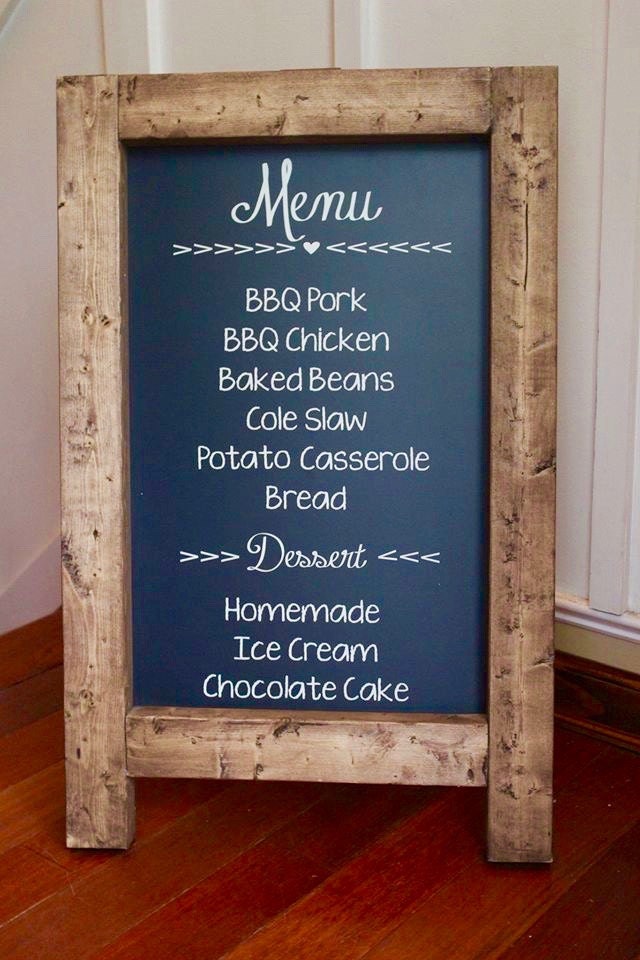 Menu
>>>>>>♥<<<<<<
BBQ Pork
BBQ Chicken
Baked Beans
Cole Slaw
Potato Casserole
Bread
>>> Dessert <<<
Homemade
Ice Cream
Chocolate Cake